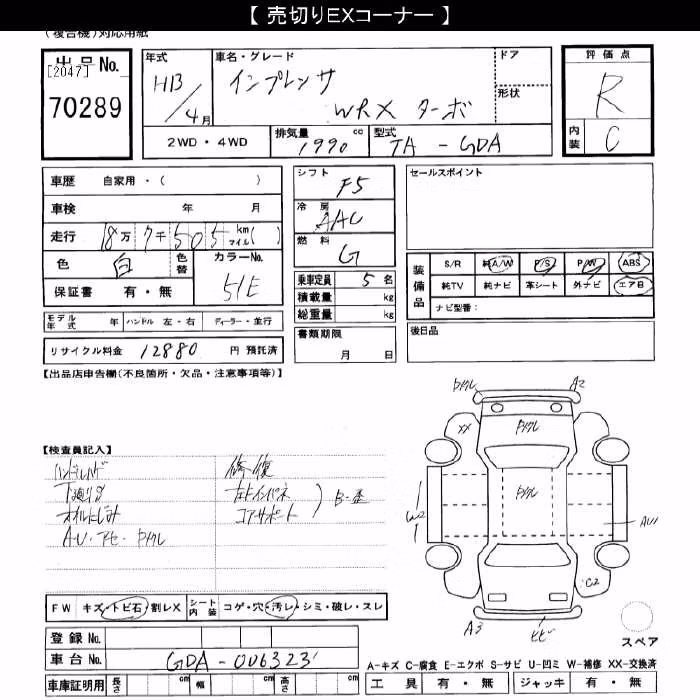 【 売切りEXコーナー 】
(複合機)対応用紙
出品No.
[2047]
70289
年式
H13/4月
車名・グレード
インプレッサ
WRX ターボ
ドア
形状
評価点
R
内装
C
2WD・4WD
排気量
1990 cc
型式
TA - GDA
車歴 自家用・( )
車検 年 月
走行 18万7千505 km マイル( )
色 白 色替 カラーNo. 51E
保証書 有・無
モデル年式 年 ハンドル 左・右 ディーラー・並行
リサイクル料金 12880 円 預託済
シフト
F5
冷房
AAC
燃料
G
乗車定員 5 名
積載量 kg
総重量 kg
書類期限
月 日
セールスポイント
装備品
S/R 純A/W P/S P/W ABS
純TV 純ナビ 革シート 外ナビ エアB
ナビ型番:
後日品
【出品店申告欄(不良箇所・欠品・注意事項等)】
【検査員記入】
下廻りサビ
オイルにじみ
修復
コアサポート
XX
A2
W2
C2
A3
スペア
FW キズ・トビ石・割レX シート内装 コゲ・穴・汚レ・シミ・破レ・スレ
登録No.
車台No. GDA-006323
車庫証明用 長さ cm 幅 cm 高さ cm
A-キズ C-腐食 E-エクボ S-サビ U-凹ミ W-補修 XX-交換済
工具 有・無 ジャッキ 有・無